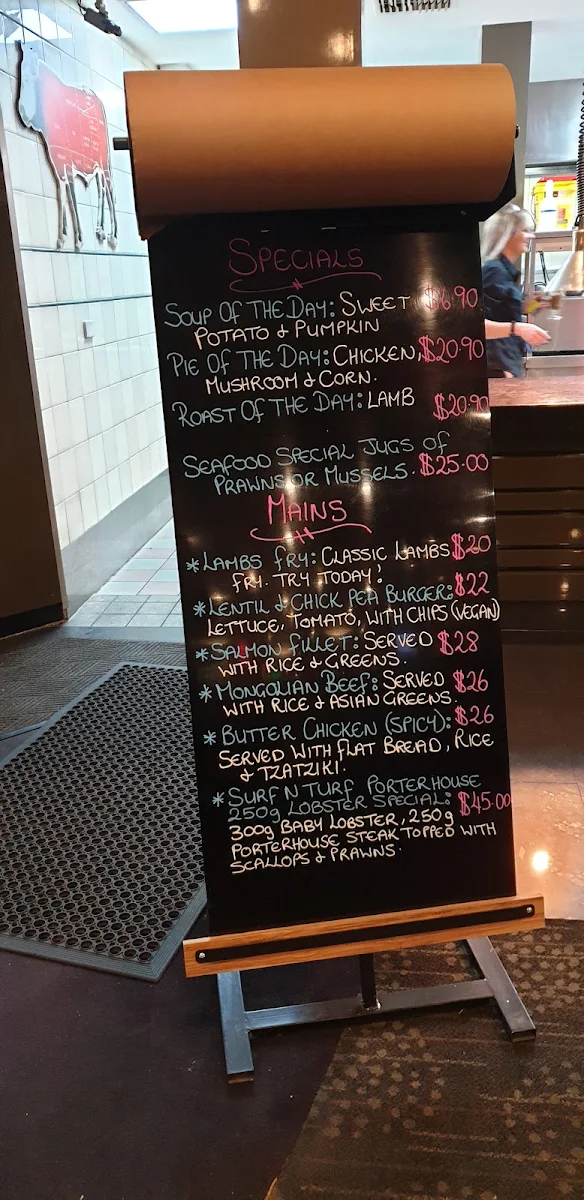 SPECIALS
SOUP OF THE DAY: SWEET $6.90
POTATO & PUMPKIN
PIE OF THE DAY: CHICKEN, $20.90
MUSHROOM & CORN.
ROAST OF THE DAY: LAMB $20.90
SEAFOOD SPECIAL JUGS OF
PRAWNS OR MUSSELS. $25.00
MAINS
*LAMBS FRY: CLASSIC LAMBS $20
FRY. TRY TODAY!
*LENTIL & CHICK PEA BURGER: $22
LETTUCE, TOMATO, WITH CHIPS (VEGAN)
*SALMON FILLET: SERVED $28
WITH RICE & GREENS.
*MONGOLIAN BEEF: SERVED $26
WITH RICE & ASIAN GREENS.
*BUTTER CHICKEN (SPICY): $26
SERVED WITH FLAT BREAD, RICE
& TZATZIKI.
*SURF N TURF PORTERHOUSE
250g LOBSTER SPECIAL: $45.00
300g BABY LOBSTER, 250g
PORTERHOUSE STEAK TOPPED WITH
SCALLOPS & PRAWNS.